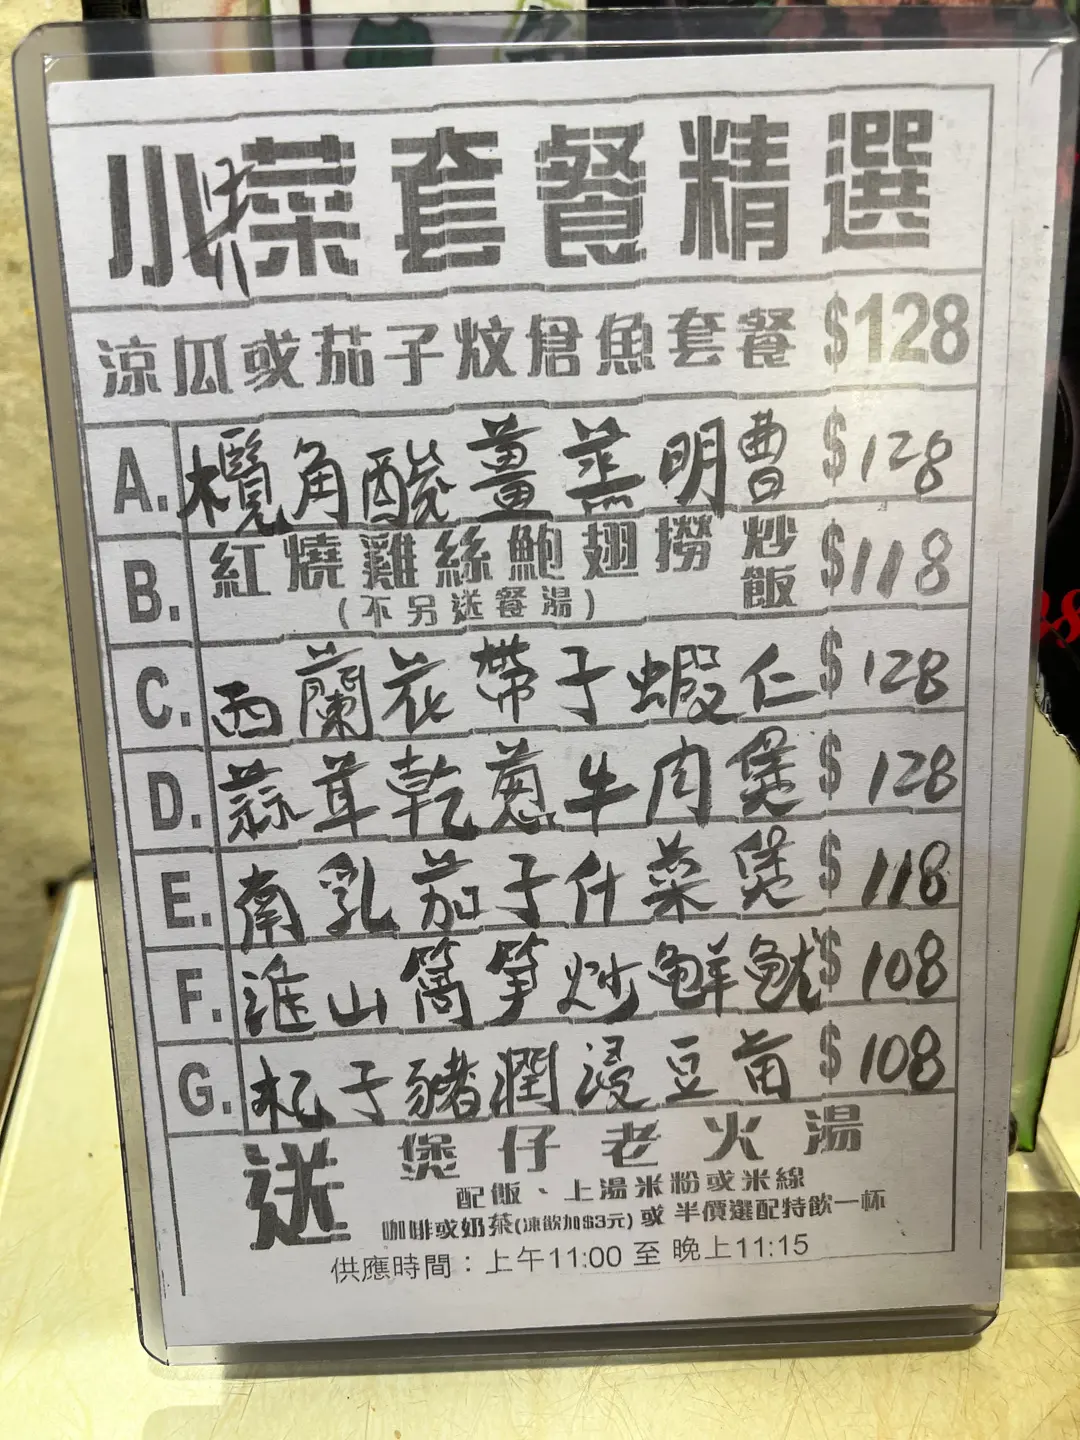 小菜套餐精選
涼瓜或茄子炆尨魚套餐 $128
A. 欖角酸薑蒸明曹 $128
B. 紅燒雞絲鮑翅撈炒飯 $118
(不另送餐湯)
C. 西蘭花帶子蝦仁 $128
D. 蒜茸乾蔥牛肉煲 $128
E. 南乳茄子什菜煲 $118
F. 淮山萵筍炒鮮魷 $108
G. 杞子豬潤浸豆苗 $108
送 煲仔老火湯
配飯、上湯米粉或米線
咖啡或奶茶(凍飲加$3元) 或 半價選配特飲一杯
供應時間：上午11:00 至 晚上11:15